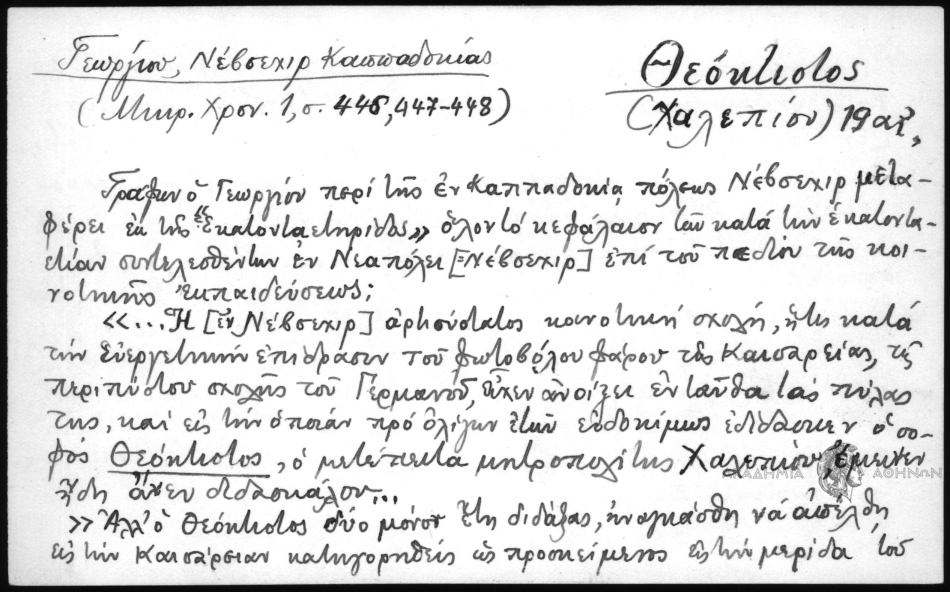 Γεωργίου, Νέβσεχιρ Καππαδοκίας
(Μικρ. Χρον. 1, σ. 446, 447-448)
Θεόκτιστος
(Χαλεπίου) 19 αἰ.
Γράφων ὁ Γεωργίου περὶ τῆς ἐν Καππαδοκίᾳ πόλεως Νέβσεχιρ μετα-
φέρει ἐκ τῆς «Ἑκατονταετηρίδος» ὅλον τὸ κεφάλαιον τῶν κατὰ τὴν ἑκατοντα-
ετίαν συντελεσθέντων ἐν Νεαπόλει [=Νέβσεχιρ] ἐπὶ τοῦ πεδίου τῆς κοι-
νοτικῆς ἐκπαιδεύσεως;
«...Ἡ [ἐν Νέβσεχιρ] ἀρτισύστατος κοινοτικὴ σχολή, ἥτις κατὰ
τὴν εὐεργετικὴν ἐπίδρασιν τοῦ φωτοβόλου φάρου τῆς Καισαρείας, τῆς
περιπύστου σχολῆς τοῦ Γερμανοῦ, εἶχεν ἀνοίξει ἐνταῦθα τὰς πύλας
της, καὶ εἰς τὴν ὁποίαν πρὸ ὀλίγων ἐτῶν εὐδοκίμως ἐδίδασκεν ὁ σο-
φὸς Θεόκτιστος, ὁ μετέπειτα μητροπολίτης Χαλεπίου, ἔμεινεν
ἤδη ἄνευ διδασκάλου...
»Ἀλλ' ὁ Θεόκτιστος δύο μόνον ἔτη διδάξας, ἠναγκάσθη νὰ ἀπέλθῃ
εἰς τὴν Καισάρειαν κατηγορηθεὶς ὡς προσκείμενος εἰς τὴν μερίδα τοῦ
ΑΚΑΔΗΜΙΑ ΑΘΗΝΩΝ